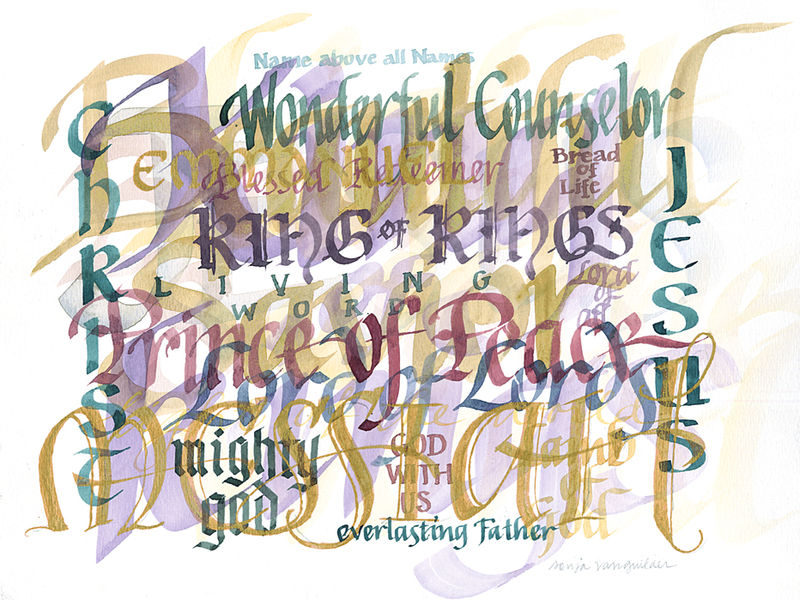 Name above all Names
Wonderful Counselor
Christ
Jesus
Emmanuel
Blessed Redeemer
Bread
of
Life
KING OF KINGS
Lord
of
all
LIVING
WORD
Prince of Peace
Lord of Lords
Messiah
mighty
god
GOD
WITH
US
Lamb
of
God
everlasting Father
sonja vanguilder